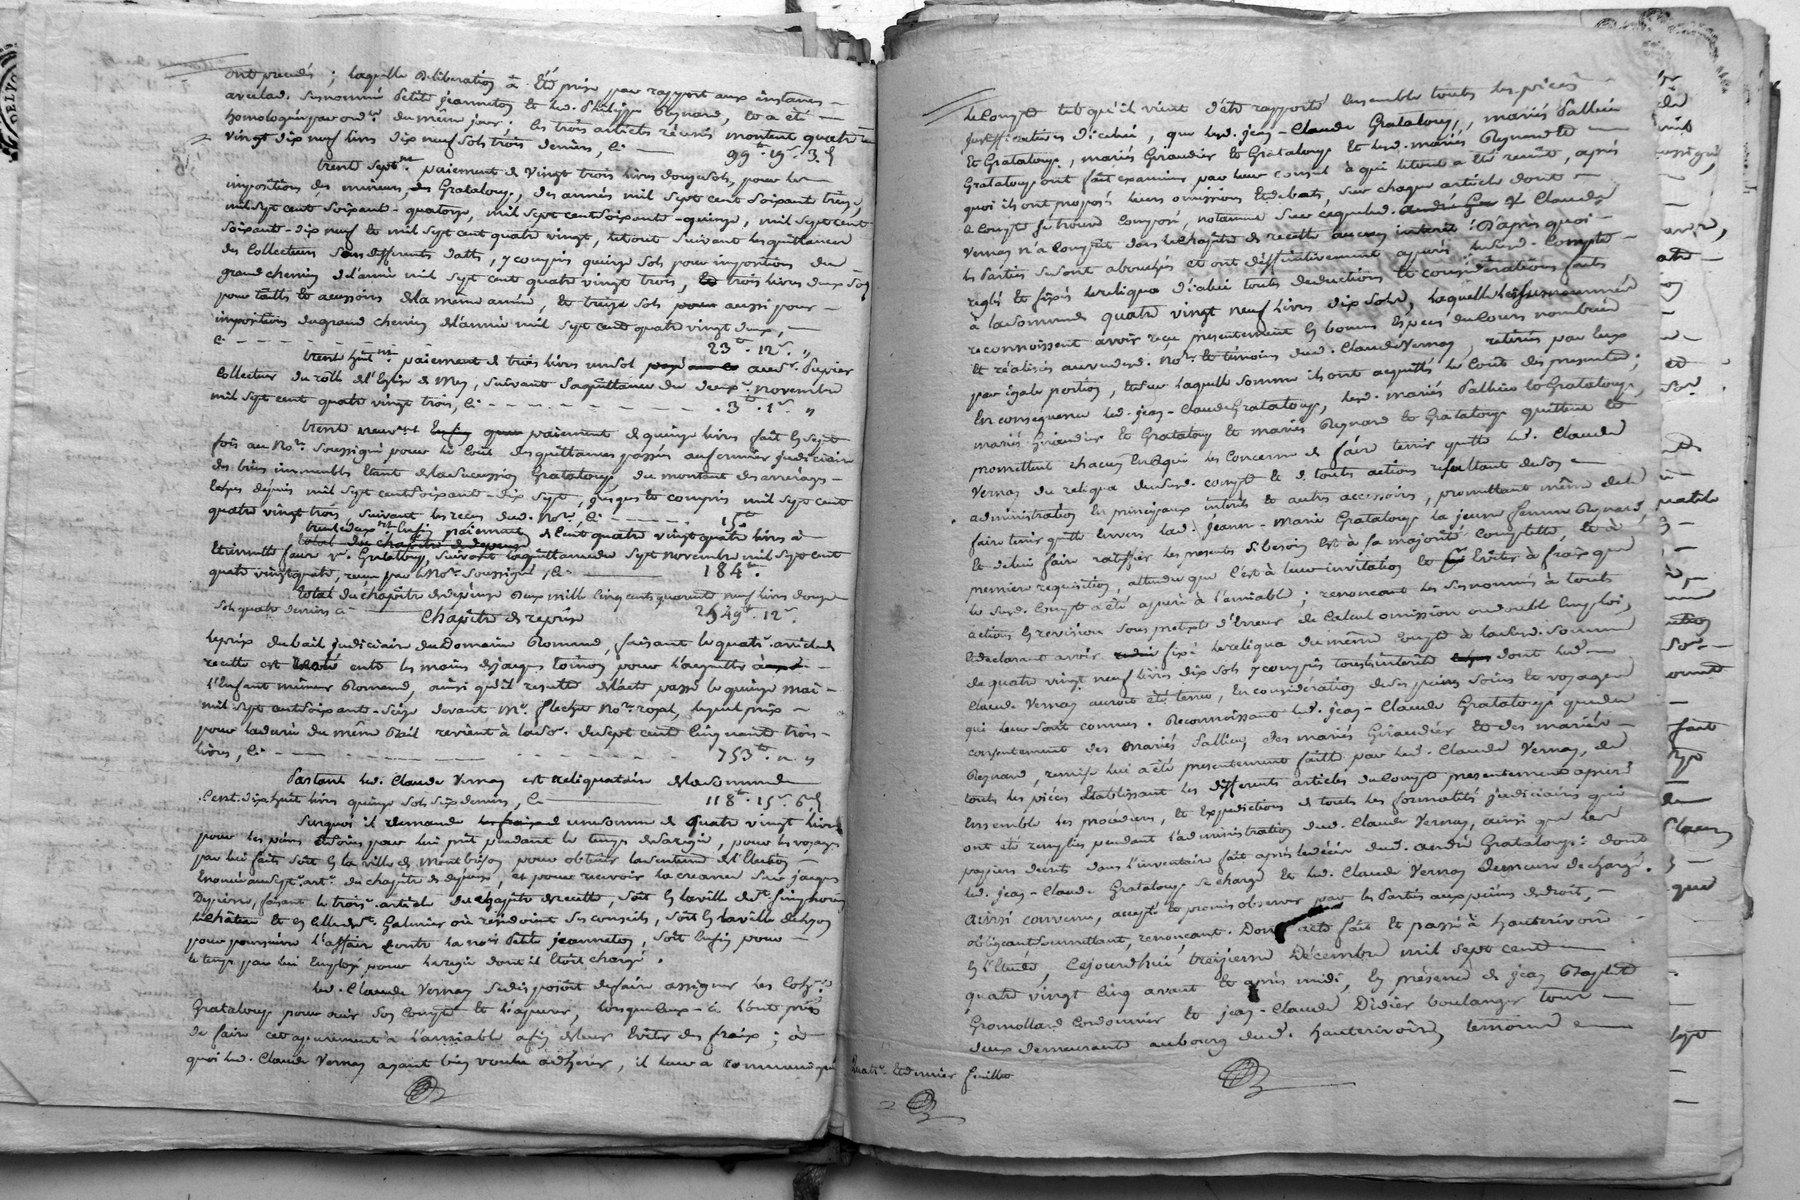 ont procédés ; laquelle deliberation à été prise par rapport aux instances
avec lad. surnommé Petite jeanneton et led. Philippe Reynard, et a été
homologuée par ord.ce du meme jour. Ces trois articles réunis montent quatre
vingt dix neuf livres dix neuf sols trois deniers, Ci 99.lt 19.s 3.d
trent sept.me paiement de vingt trois livres douze sols, pour les
impositions des mineurs, des Grataloup, des années mil sept cent soixante treize,
mil sept cent soixante-quatorze, mil sept cent soixante-quinze, mil sept cent
soixante-dix neuf et mil sept cent quatre vingt, le tout suivant les quittances
des Collecteurs sous differents datte, y compris quinze sols pour imposition du
grand chemin de l'année mil sept cent quatre vingt trois, et trois livres deux sols
pour taille et accessoires de la même année, et treize sols pour aussi pour
imposition du grand chemin de l'année mil sept cent quatre vingt deux,
Ci 23.lt 12.s "
trent huit.me paiement de trois livres un sol payé au s.r Perier
Collecteur du rolle de l'Eglise de Mey, suivant sa quittance du deux.e novembre
mil sept cent quatre vingt trois, Ci 3.lt 1.s "
trent neuv.me Enfin paiement de quinze livres fait en sept
fois au No.re soussigné pour le Coût des quittances passées au fermier judiciaire
des biens immeubles étant de la succession Grataloup, du montant des arrérages
échus depuis mil sept cent soixante-dix sept, jusques et compris mil sept cent
quatre vingt trois suivant les recus dud. No.re Ci 15.lt
Enfin paiement de cent quatre vingt quatre livres à
total du chapitre de depense
Etiennette faure v.e Grataloup, suivant la quittance du sept novembre mil sept cent
quatre vingt quatre, recue par le No.re soussigné, Ci 184.lt
total du chapitre de depense deux mille Cinq cents quarante neuf livres douze
sols quatre deniers Ci 2549.lt 12.s
Chapitre de reprise
le prix du bail judiciaire du Domaine Romand, faisant le quatr.e article de
recette est entre les mains de jacques Coinon, pour l'acquitte
l'Enfant mineur Romand, ainsi qu'il resulte de l'acte passé le quinze mai
mil sept cent soixante-seize devant M.e flechet No.re royal, lequel prix
pour la durée du même Bail revient à la so.e de sept cent Cinquante trois
livres, Ci 753.lt " "
Partant led. Claude Vernay est reliquataire de la somme de
Cent dix huit livres quinze sols six deniers, Ci 118.lt 15.s 6.d
Surquoi il demande une somme de quatre vingt livres
pour les peines et soins par lui prit pendant le temps de sa régie, pour les voyages
par lui faits soit en la ville de Montbrison pour obtenir la sentence de l'Election
Enoncée au sept.e art.e du chapitre de depense, et pour recevoir la creance sur jacques
faisant le trois.e article du chapitre de recette, soit en la ville de S.t Simphorien
le château et en celle de S.t Galmier où résidoient ses conseils, soit en la ville de Lyon
pour poursuivre l'affaire contre la no.é Petite jeanneton, soit enfin pour
le temps par lui Employé pour la regie dont il étoit chargé.
led. Claude Vernay se disposoit de faire assigner les Coh.rs
Grataloup pour ouir son Compte et l'apurer, lorsque ceux-ci l'ont prié
de faire cet apurement à l'amiable afin de leur Eviter des fraix ; à
quoi led. Claude Vernay ayant bien voulu adhérer, il leur a communiqué
Quatr.e et dernier feuillet
le Compte tel qu'il vient d'etre rapporté ensemble toutes les pièces
justificatives d'icelui, que led. jean-Claude Grataloup, mariés Pallieu
et Grataloup, mariés Giraudier et Grataloup et lesd. mariés Reynard et
Grataloup ont fait examiner par leur conseil à qui le tout a été remit, après
quoi ils ont proposé leurs omissions et debats, sur chaque article dont
le Compte se trouve Composé, notamment sur ce que led. Claude
Vernay n'a Compté dans le chapitre de recette aucun interet ; D'après quoi
les Parties se sont abouchés et ont deffinitivement appuré led. Compte
reglé et fixés le reliqua d'icelui toutes deductions et considérations faites
à la somme de quatre vingt neuf livres dix sols, laquelle les susnommés
reconnoissent avoir recu presentement en bonnes Espèces du Cours nombrées
et réalisés au vu desd. No.re et témoins dud. Claude Vernay, retirées par eux
par égale portion, et sur laquelle somme ils ont acquitté le Coût des presentes ;
En consequence led. jean-Claude Grataloup, lesd. mariés Pallieu et Grataloup,
mariés Giraudier et Grataloup et mariés Reynard et Grataloup quittent et
promettent chacun En ce qui les concerne de faire tenir quitte led. Claude
Vernay du reliqua de sond. compte et de toutes actions résultant de son
administration en principaux interets et autres accessoires, promettant même de le
faire tenir quitte envers lad. jeanne-Marie Grataloup la jeune femme Reynard,
et de lui faire ratiffier les presentes si besoin Est à sa majorité complette, et à
premiere requisition, attendu que c'est à leur invitation et Eviter à fraix que
le susd. Compte a été apuré à l'amiable ; renoncant les susnommés à toutes
actions en revision sous pretexte d'Erreur de Calcul omission ou double Employ,
et declarant avoir fixé le reliqua du même compte à la susd. somme
de quatre vingt neuf livres dix sols y compris tous les interets dont led.
Claude Vernay auroit été tenu, En considération de ses peines soins et voyages
qui leur sont connus. Reconnoissant led. jean-Claude Grataloup que du
consentement des Mariés Pallieu, des mariés Giraudier et des mariés
Reynard, remise lui a été presentement faitte par led. Claude Vernay, de
toutes les pièces Etablissant les differents articles du Compte presentement apuré
Ensemble les procédures, et Expeditions de toutes les formalités judiciaires qui
ont été remplies pendant l'administration dud. Claude Vernay, ainsi que les
papiers decrits dans l'inventaire fait après le décès dud. andré Grataloup : dont
led. jean-Claude Grataloup se charge et led. Claude Vernay demeure dechargé.
Ainsi convenu, accepté et promis observer par les Parties aux peines de droit,
obligeant soumettant, renoncant. Dont acte fait et passé à hauterivoire
En l'Etude, Cejourdhui treizieme Décembre mil sept cent
quatre vingt Cinq avant et après midi, En présence de jean Baptiste
Gromollard Cordonnier et jean-Claude Didier boulanger tous
deux demeurants au bourg dud. hauterivoire temoins